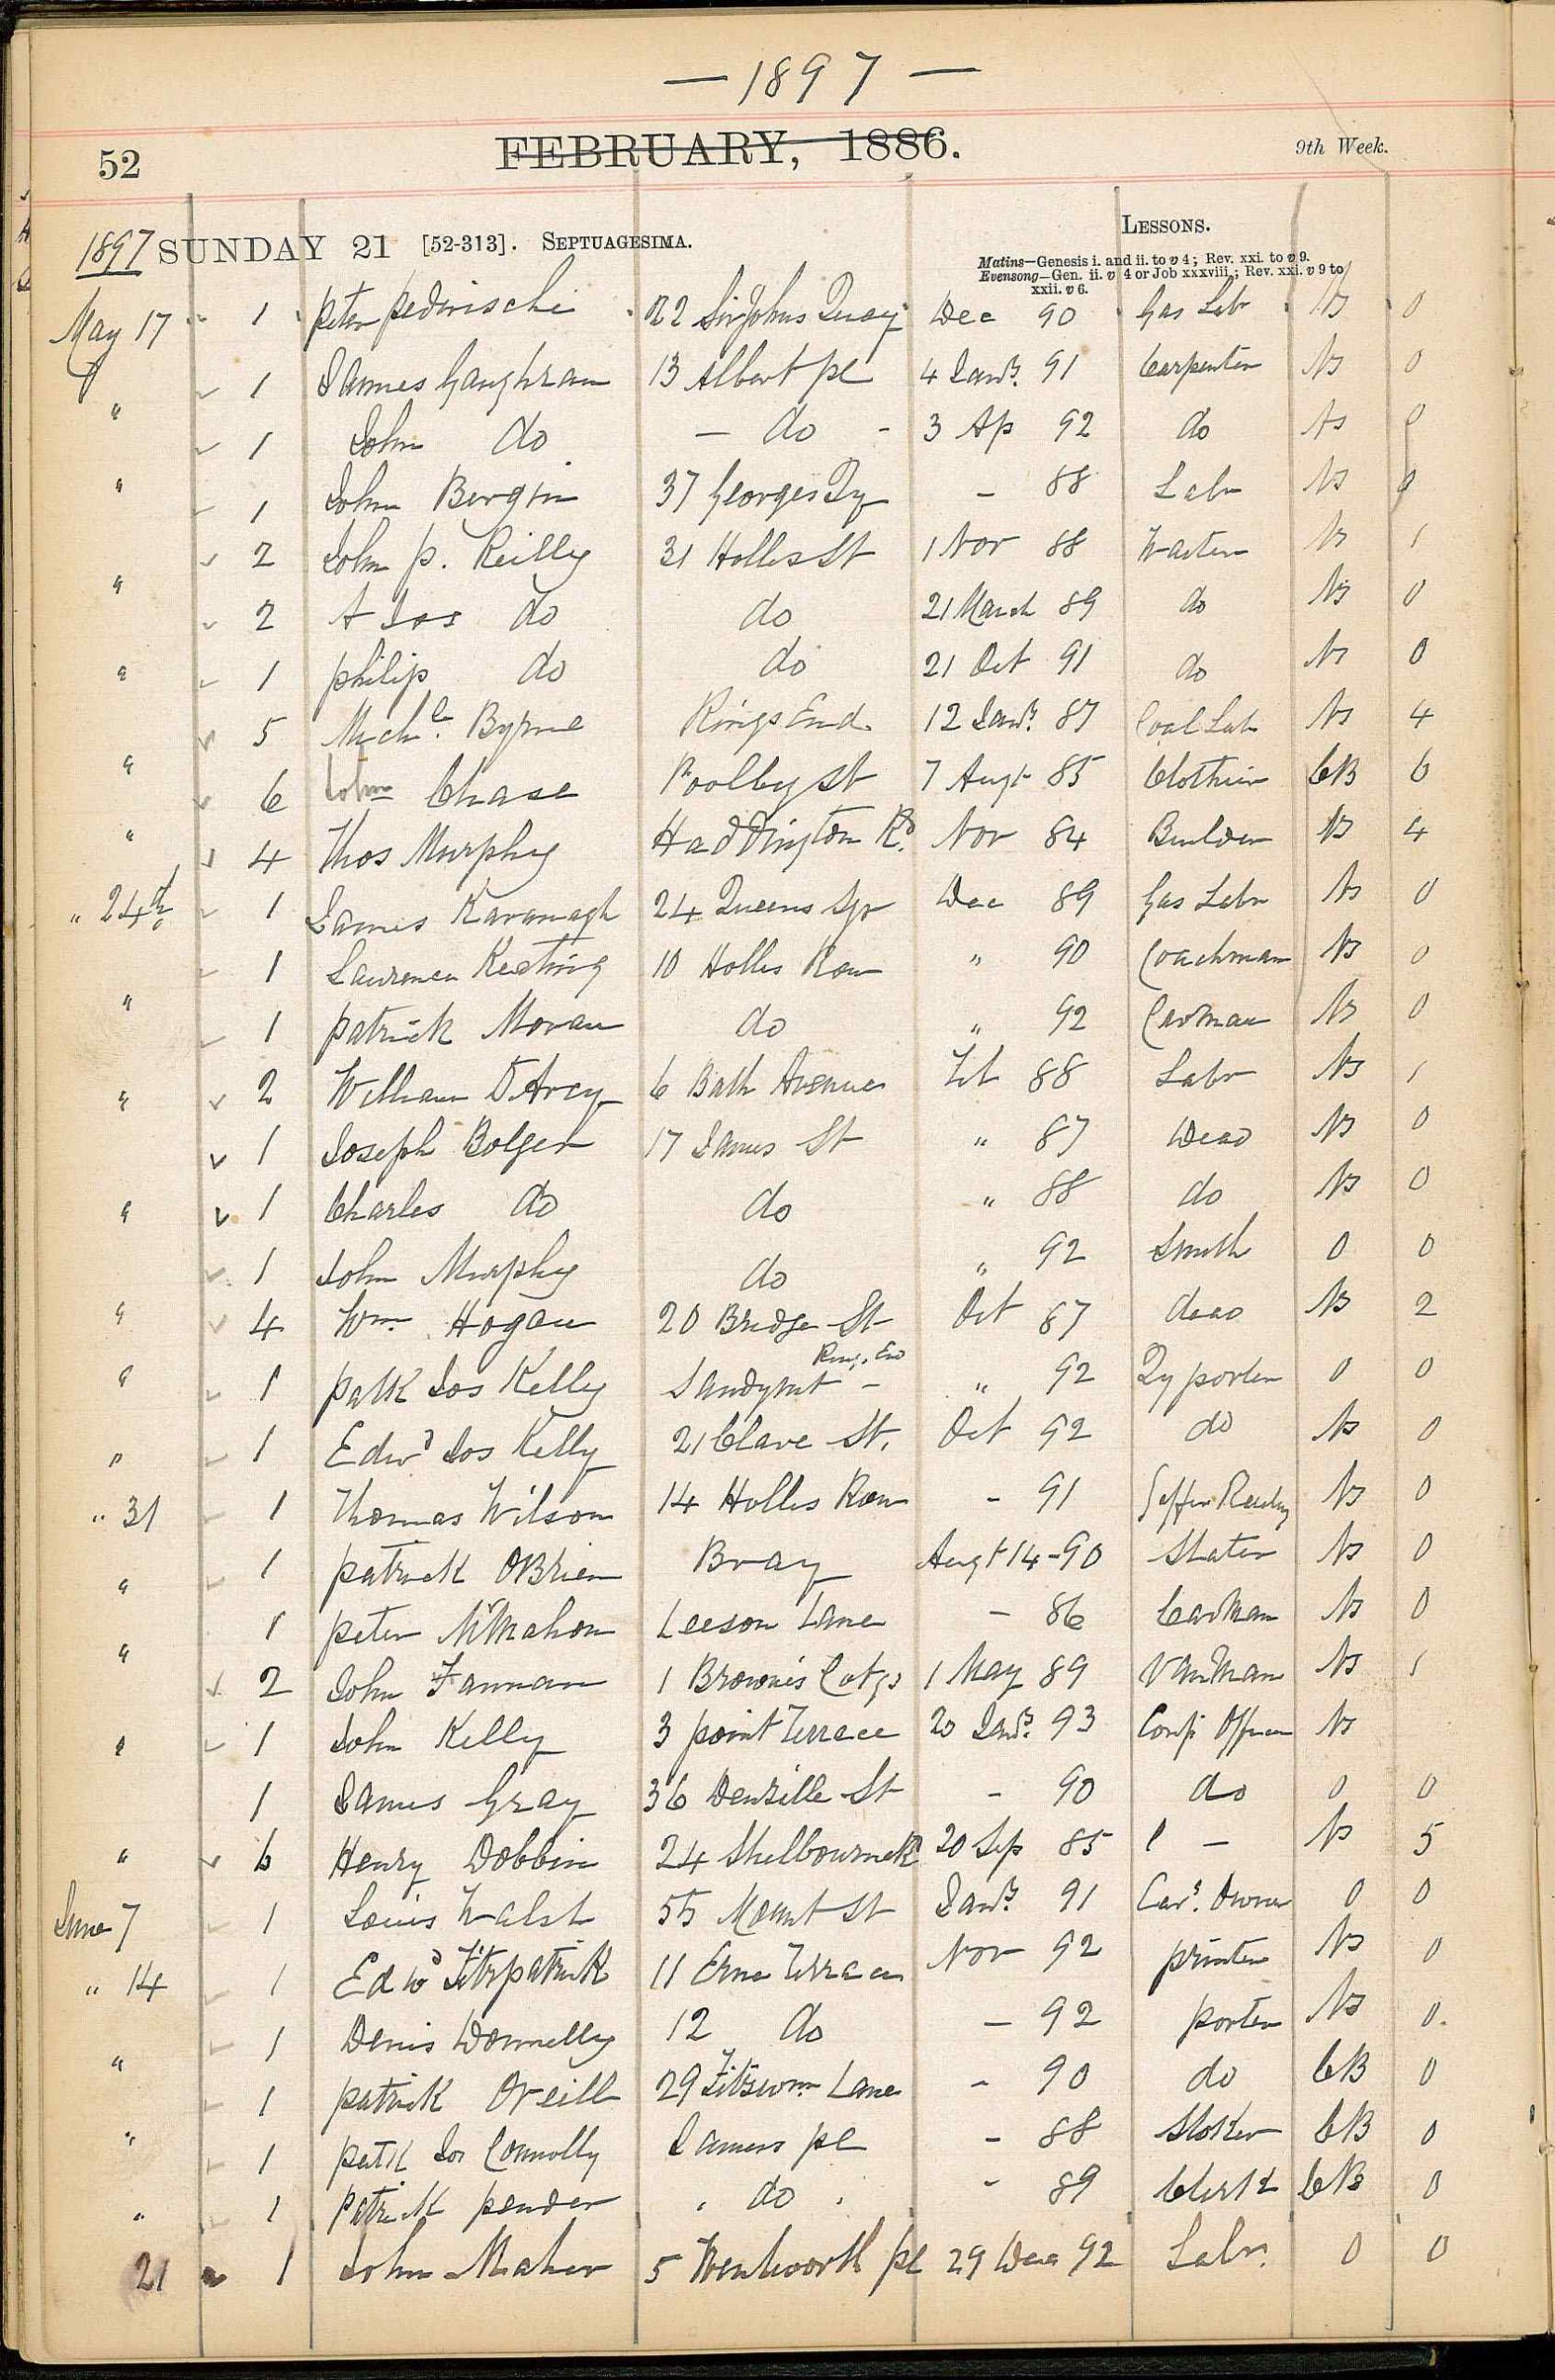 — 1897 —
52 FEBRUARY, 1886. 9th Week.
LESSONS.
1897 SUNDAY 21 [52-313]. SEPTUAGESIMA.
Matins—Genesis i. and ii. to v 4; Rev. xxi. to v 9.
Evensong—Gen. ii. v 4 or Job xxxviii.; Rev. xxi. v 9 to
xxii. v 6.
May 17 1 Peter 22 Sir Johns Quay Dec 90 Gas Labr NS 0
" 1 James Gaughran 13 Albert pl 4 Jany. 91 Carpenter NS 0
1 John do — do - 3 Ap 92 do NS 0
" 1 John Bergin 37 Georges Qy - 88 Labr NS 0
2 John p. Reilly 31 Holles St 1 Nov 88 Waiter NS 1
" 2 A Jos do do 21 March 89 do NS 0
" 1 philip do do 21 Oct 91 do NS 0
5 Michl. Byrne Rings End 12 Jany. 87 Coal Lab NS 4
" 6 John Chase St 7 Augt 85 Clothier CB 6
" 4 Thos Murphy Haddington Rd. Nov 84 Builder NS 4
" 24th 1 James Kavanagh 24 Queens Sqr Dec 89 Gas Labr NS 0
1 Laurence Keating 10 Holles Row " 90 Coachman NS 0
" 1 patrick Moran do " 92 Carman NS 0
" 2 William D'Arcy 6 Bath Avenue Feb 88 Labr NS 1
1 Joseph Bolger 17 James St " 87 Dead NS 0
" 1 Charles do do " 88 do NS 0
1 John Murphy do " 92 Smith 0 0
" 4 Wm. Hogan 20 Bridge St Oct 87 dead NS 2
Rings End
" 1 patk Jos Kelly Sandymt - " 92 Qy porter 0 0
" 1 Edwd Jos Kelly 21 Clare St. Oct 92 do NS 0
" 31 1 Thomas Wilson 14 Holles Row - 91 NS 0
" 1 patrick OBrien Bray Augt 14-90 Slater NS 0
1 peter McMahon Leeson Lane - 86 Carman NS 0
" 2 John Fannan 1 Browne's Cotgs 1 May 89 Vanman NS 1
" 1 John Kelly 3 point Terrace 20 Jany. 93 Corp Officer NS
1 James Gray 36 Denzille St - 90 do 0 0
" 6 Henry Dobbin 24 Shelbourne Rd 20 Sep 85 - NS 5
June 7 1 Louis Walsh 55 Mount St Jany. 91 Car. Owner 0 0
" 14 1 Edwd Fitzpatrick 11 Erne Terrace Nov 92 printer NS 0
1 Denis Donnelly 12 do - 92 porter NS 0.
" 1 patrick ONeill 29 Fitzwm Lane - 90 do CB 0
" 1 patk Jos Connolly James pl - 88 Stoker CB 0
" 1 patrick pender . do . - 89 Clerk CB 0
21 1 John Maher 5 Wentworth pl 29 Dec 92 Labr. 0 0